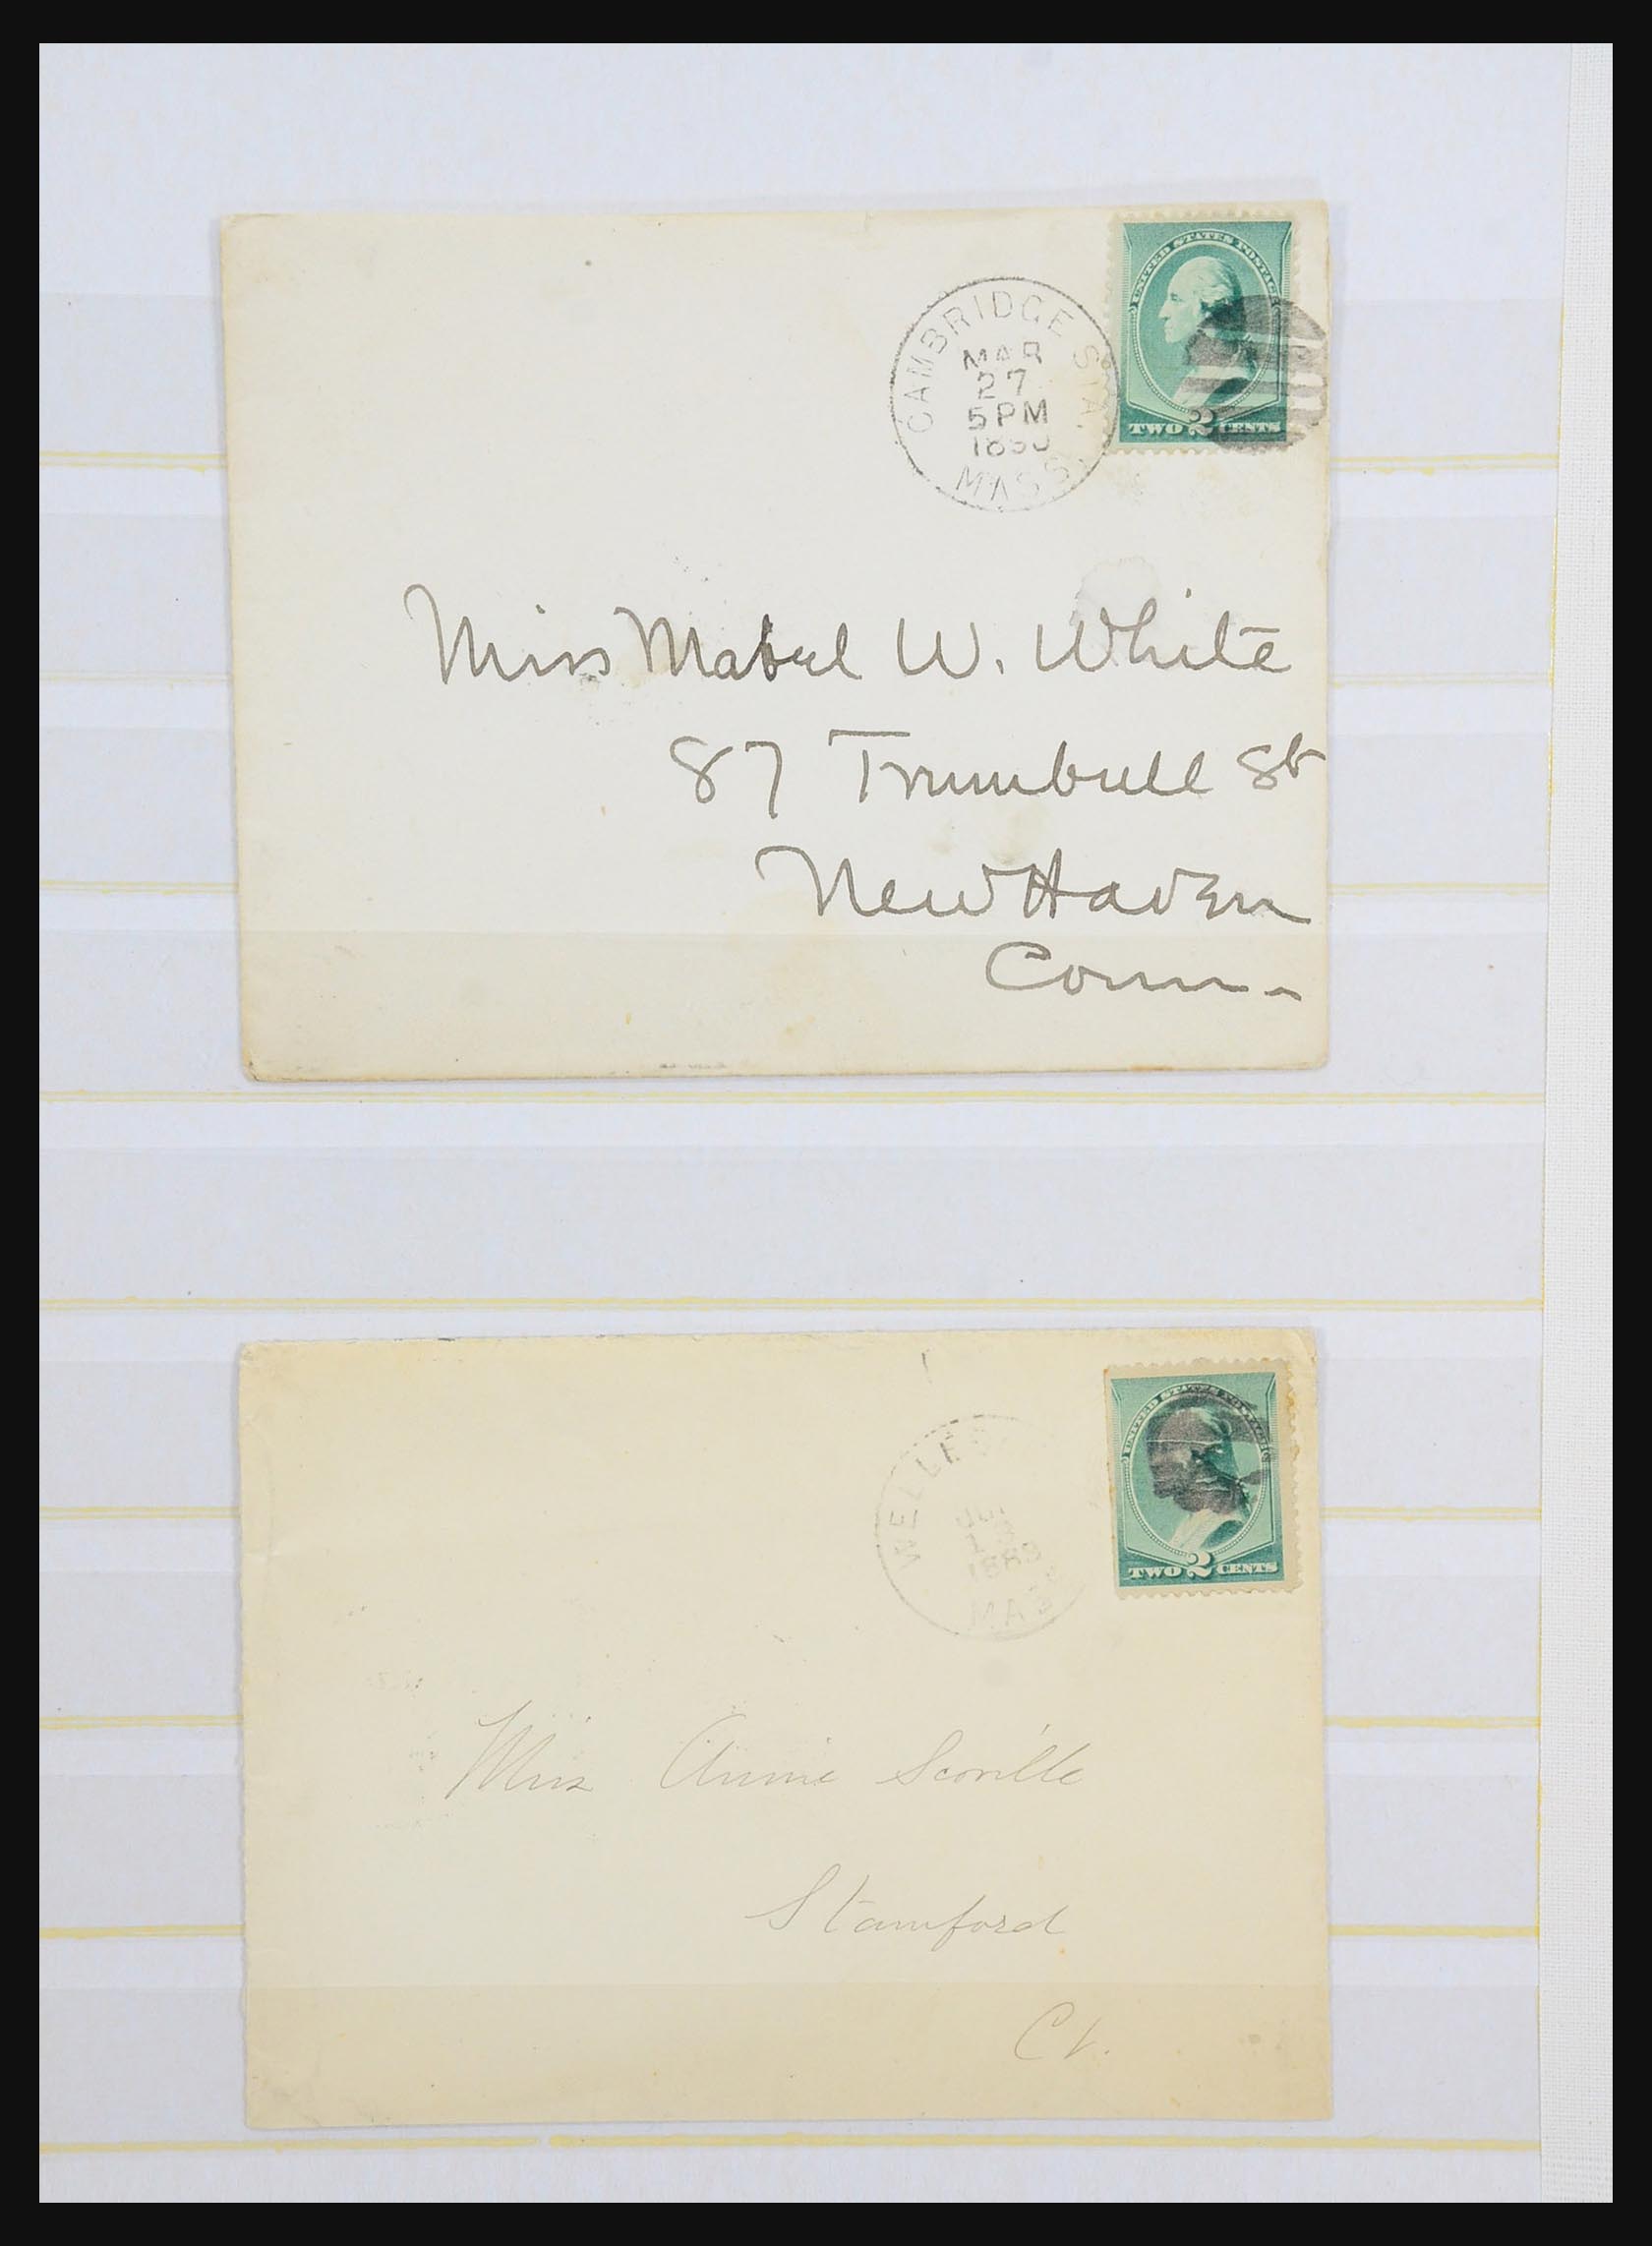 UNITED STATES POSTAGE
TWO 2 CENTS
CAMBRIDGE STA.
MAR
27
5 PM
MASS
Miss Mabel W. White
87 Trumbull St
New Haven
Conn.
UNITED STATES POSTAGE
TWO 2 CENTS
MASS
Miss Annie Scoville
Stamford
Ct.